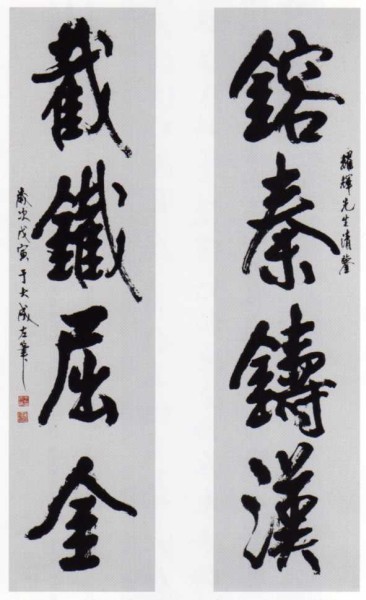 鎔秦鑄漢
耀輝先生清鑒
截鐵屈金
歲次戊寅于大成左筆